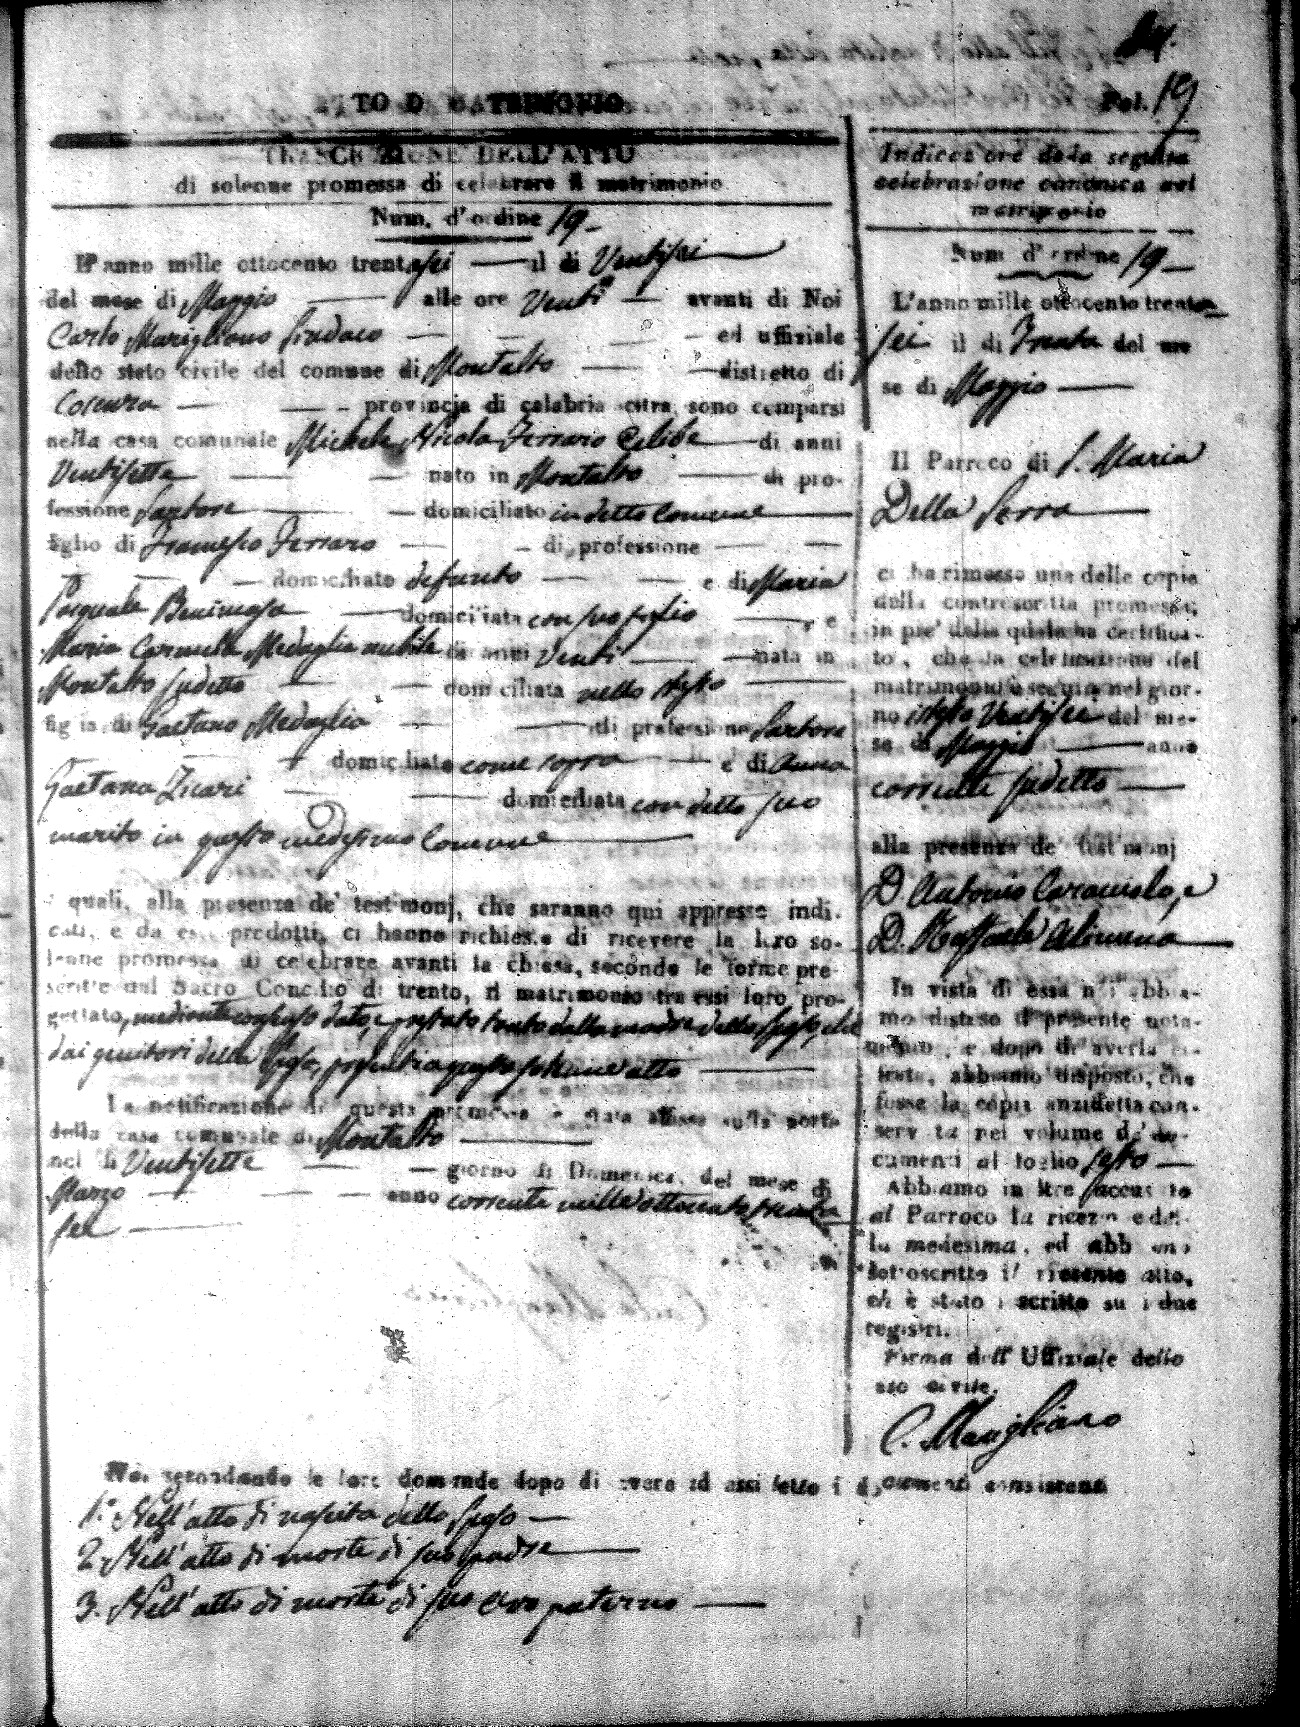 ATTO DI MATRIMONIO.
Fol. 19
TRASCRIZIONE DELL'ATTO
di solenne promessa di celebrare il matrimonio
Num. d'ordine 19-
L'anno mille ottocento trentasei — il di Ventisei
del mese di Maggio — alle ore Venti — avanti di Noi
Carlo Marigliano Sindaco — ed uffiziale
dello stato civile del comune di Montalto — distretto di
Cosenza — provincia di calabria citra, sono comparsi
nella casa comunale Michele Nicola Ferraro Celibe — di anni
Ventisette — nato in Montalto — di pro-
fessione Sartore — domiciliato in detto Comune
figlio di Francesco Ferraro — di professione —
— domiciliato defunto — e di Maria
Pasquale — domiciliata con suo figlio — , e
Maria Carmela Medaglia nubile di anni Venti — nata in
Montalto sudetto — domiciliata nello stesso
figlia di Gaetano Medaglia — di professione Sartore
— domiciliato come sopra — e di Anna
Gaetana Zicari — domiciliata con detto suo
marito in questo medesimo Comune
i quali, alla presenza de' testimonj, che saranno qui appresso indi-
cati, e da essi predotti, ci hanno richiesto di ricevere la loro so-
lenne promessa di celebrare avanti la chiesa, secondo le forme pre-
scritte dal Sacro Concilio di trento, il matrimonio tra essi loro pro-
gettato, mediante consenso dato, e prestato tanto dalla madre dello sposo, che
dai genitori della sposa, presenti a questo solenne atto
La notificazione di questa promessa è stata affissa sulla porta
della casa comunale di Montalto
nel di Ventisette — giorno di Domenica, del mese di
Marzo — anno corrente mille ottocento trenta
sei
Noi secondando le loro domande dopo di avere ad essi letto i documenti consistenti
1.° Nell'atto di nascita dello sposo
2. Nell'atto di morte di suo padre
3. Nell'atto di morte di suo avo paterno
Indicazione della seguita
celebrazione canonica nel
matrimonio
Num d'ordine 19
L'anno mille ottocento trenta-
sei il di Trenta del me
se di Maggio
Il Parroco di S. Maria
Della Serra
ci ha rimesso una delle copie
della controscritta promessa;
in pie' della quale ha certifica-
to, che la celebrazione del
matrimonio è seguita nel gior-
no istesso Ventisei del me-
se di Maggio — anno
corrente sudetto
alla presenza de' testimonj
D. Antonio Caracciolo, e
D. Raffaele Alimena
In vista di essa noi abbia-
mo disteso il presente nota-
mento, e dopo di averla ci-
frata, abbiamo disposto, che
fosse la copia anzidetta con-
servata nel volume de' do-
cumenti al foglio sesto
Abbiamo inoltre accusato
al Parroco la ricezione del-
la medesima, ed abbiamo
sottoscritto il presente atto,
ch è stato iscritto su i due
registri.
Firma dell' Uffiziale dello
stato civile.
C. Marigliano